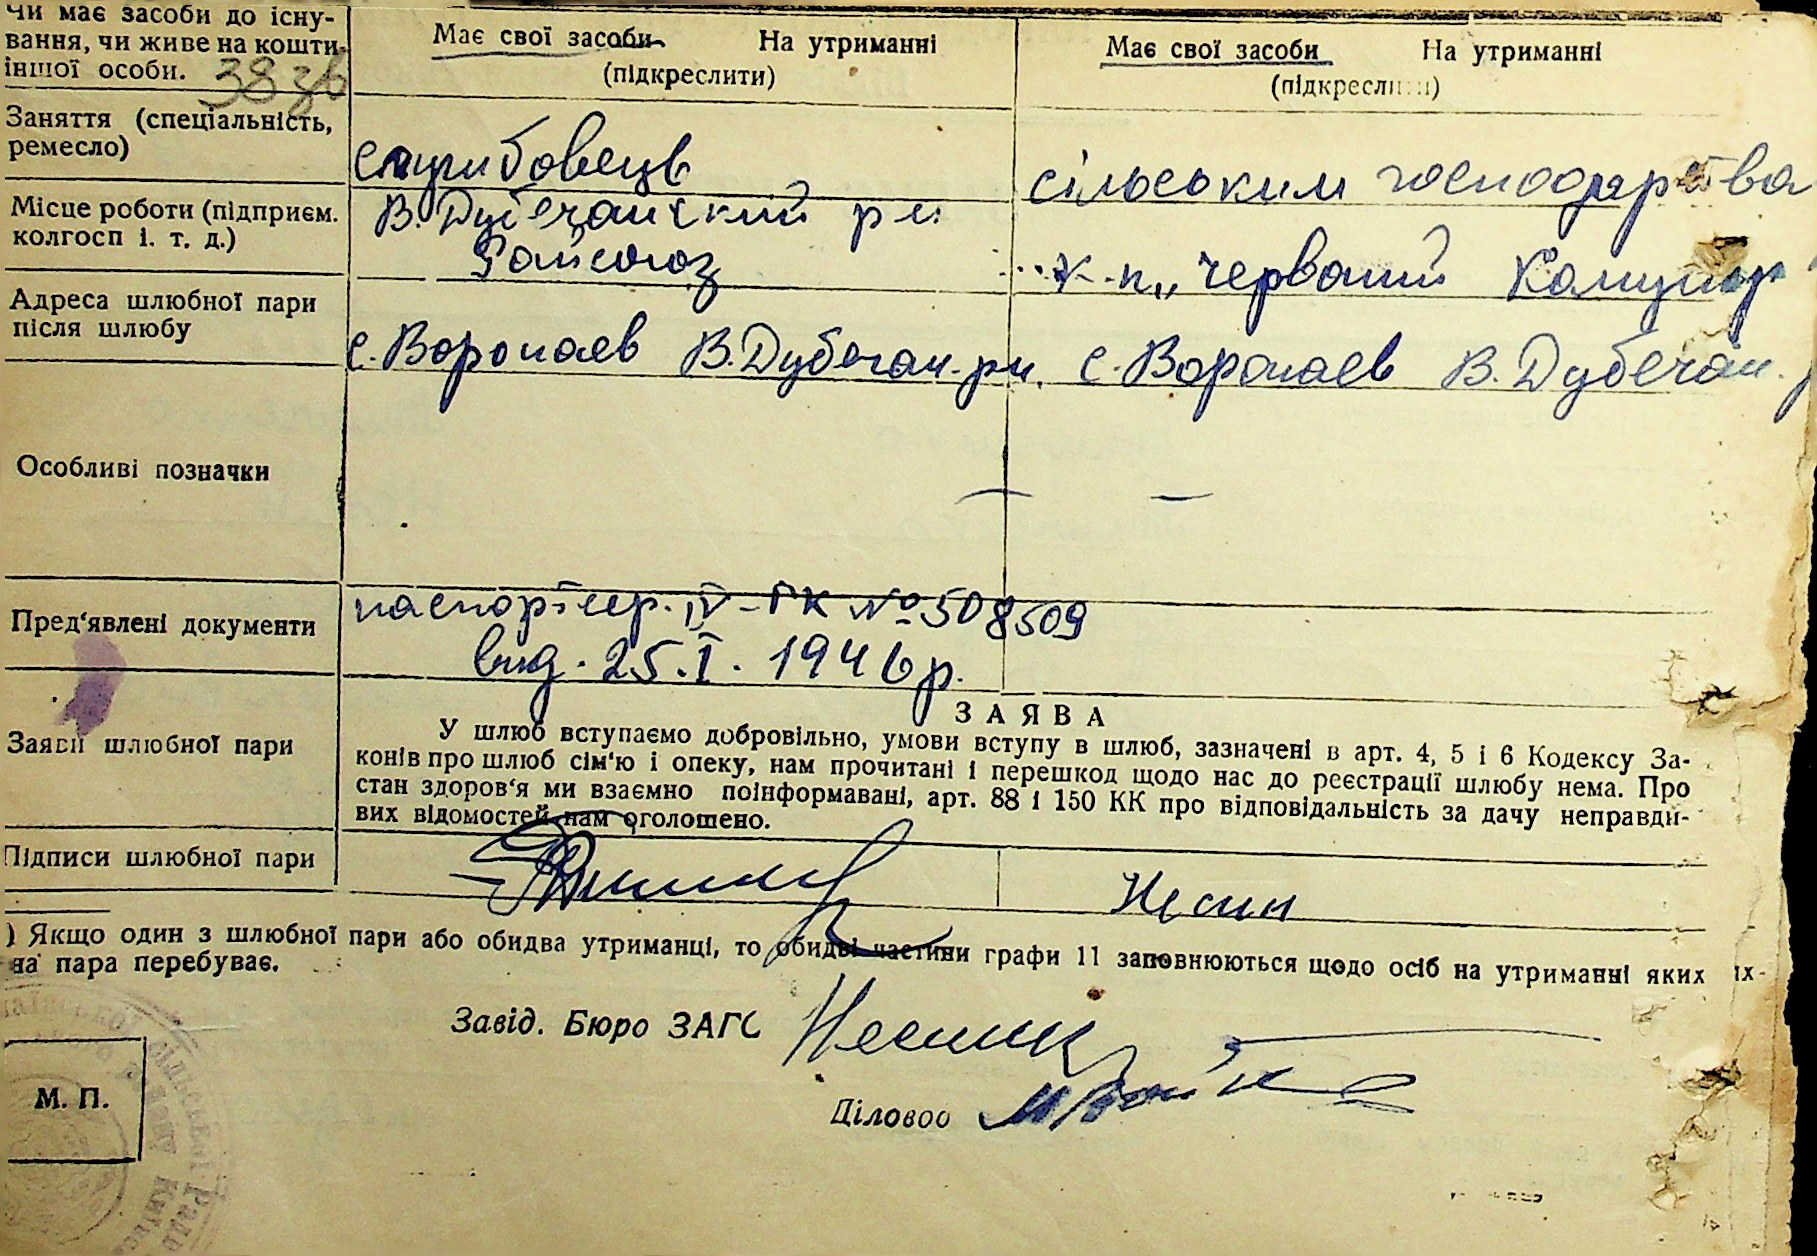 Чи має засоби до існу-
вання, чи живе на кошти
іншої особи.
38 зв
Має свої засоби На утриманні
(підкреслити)
Має свої засоби На утриманні
(підкреслити)
Заняття (спеціальність,
ремесло)
сільським господарства
Місце роботи (підприєм.
колгосп і. т. д.)
В. Дубечанський р-н
Райсоюз
к-п „Червоний Комунар"
Адреса шлюбної пари
після шлюбу
с. Воропаев В. Дубечан. р-н.
с. Воропаев В. Дубечан.
Особливі позначки
— —
Пред'явлені документи
паспорт сер. IV-ГК № 508509
вид. 25.I. 1946 р.
Заяви шлюбної пари
ЗАЯВА
У шлюб вступаємо добровільно, умови вступу в шлюб, зазначені в арт. 4, 5 і 6 Кодексу За-
конів про шлюб сім'ю і опеку, нам прочитані і перешкод щодо нас до реєстрації шлюбу нема. Про
стан здоров'я ми взаємно поінформавані, арт. 88 і 150 КК про відповідальність за дачу неправди-
вих відомостей нам оголошено.
Підписи шлюбної пари
) Якщо один з шлюбної пари або обидва утриманці, то обидві частини графи 11 заповнюються щодо осіб на утриманні яких їх-
на пара перебуває.
Завід. Бюро ЗАГС
Діловод
М. П.